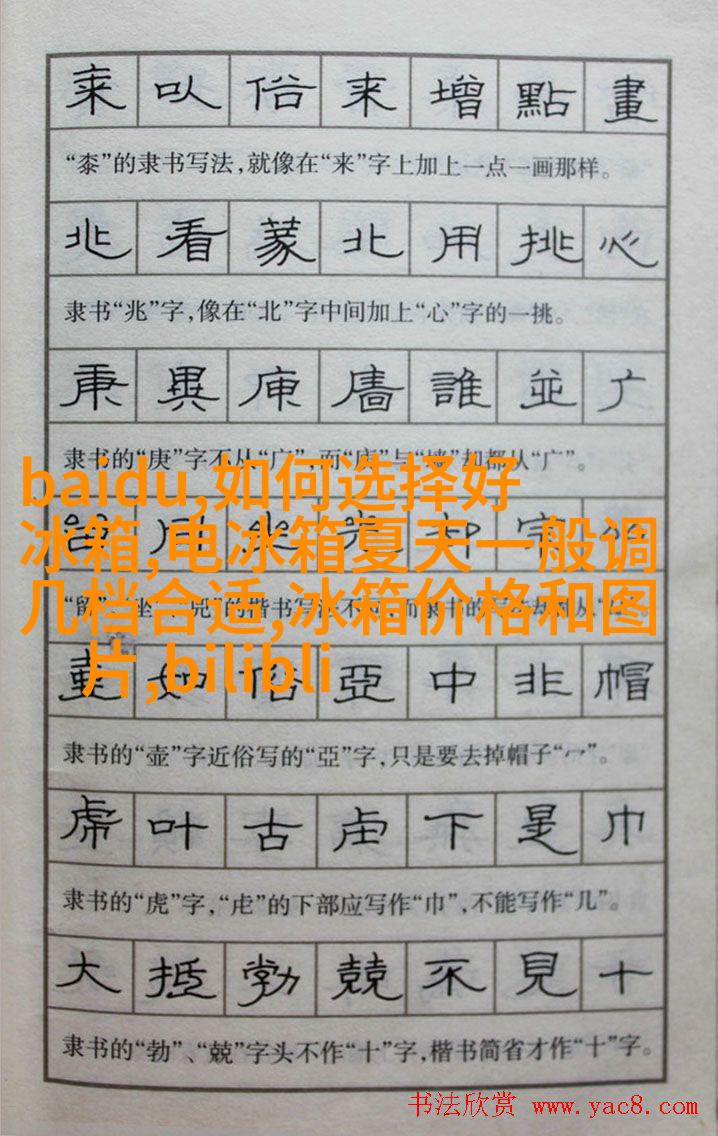 来以俗来增點畫
“桼”的隶书写法，就像在“来”字上加上一点一画那样。
兆看蒙北用挑心
隶书“兆”字，像在“北”字中间加上“心”字的一挑。
庚異庫廧誰並广
隶书的“庚”字不从“广”，而“庫”与“墙”却都从“广”。
baidu,如何选择好
冰箱,电冰箱夏天一般调
几档合适,冰箱价格和图
片,bilibli
壶如俗亞中非帽
隶书的“壶”字近俗写的“亞”字，只是要去掉帽子“冖”。
虎叶古虍下是巾
隶书的“虎”字，“虍”的下部应写作“巾”，不能写作“几”。
大抵勃兢不見十
隶书的“勃”、“兢”字头不作“十”字，楷书简省才作“十”字。
书法欣赏 www.yac8.com